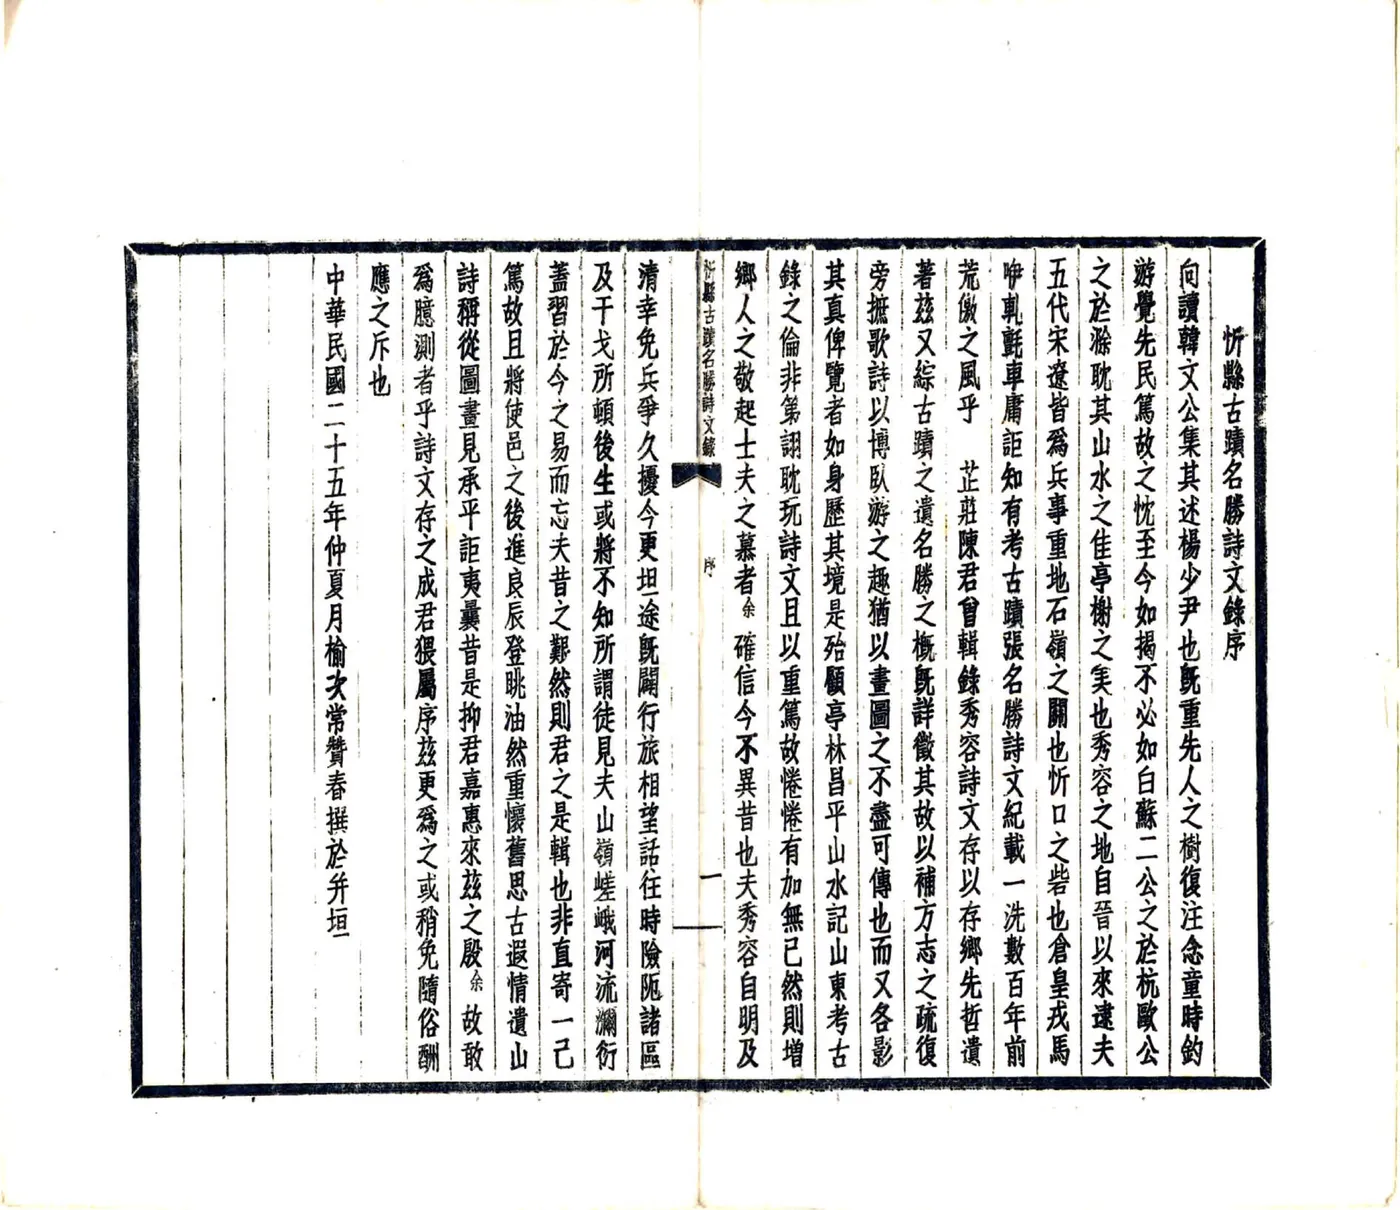 忻縣古蹟名勝詩文錄序
向讀韓文公集其述楊少尹也旣重先人之樹復注念童時釣
游覺先民篤故之忱至今如揭不必如白蘇二公之於杭歐公
之於滁耽其山水之佳亭榭之美也秀容之地自晉以來逮夫
五代宋遼皆爲兵事重地石嶺之關也忻口之砦也倉皇戎馬
咿軋氈車庸詎知有考古蹟張名勝詩文紀載一洗數百年前
荒儌之風乎 芷莊陳君曾輯錄秀容詩文存以存鄉先哲遺
著茲又綜古蹟之遺名勝之槪旣詳徵其故以補方志之疏復
旁摭歌詩以博臥游之趣猶以畫圖之不盡可傳也而又各影
其真俾覽者如身歷其境是殆顧亭林昌平山水記山東考古
錄之倫非第詡耽玩詩文且以重篤故惓惓有加無已然則增
鄉人之敬起士夫之慕者余確信今不異昔也夫秀容自明及
忻縣古蹟名勝詩文錄
序
一
清幸免兵爭久擾今更坦途旣闢行旅相望話往時險阨諸區
及干戈所頓後生或將不知所謂徒見夫山嶺嵯峨河流瀰衍
蓋習於今之易而忘夫昔之艱然則君之是輯也非直寄一己
篤故且將使邑之後進良辰登眺油然重懷舊思古遐情遺山
詩稱從圖畫見承平詎夷曩昔是抑君嘉惠來茲之殷余故敢
爲臆測者乎詩文存之成君猥屬序茲更爲之或稍免隨俗酬
應之斥也
中華民國二十五年仲夏月榆次常贊春撰於幷垣